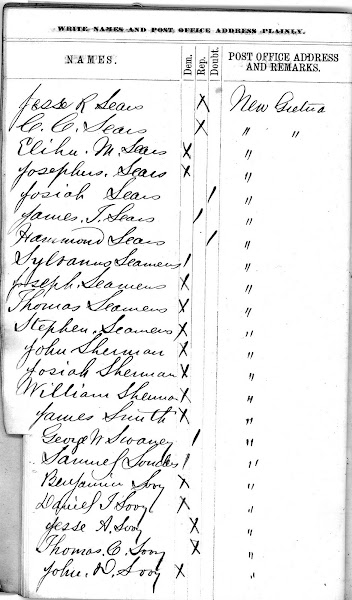 WRITE NAMES AND POST OFFICE ADDRESS PLAINLY.
NAMES. Dem. Rep. Doubt. POST OFFICE ADDRESS AND REMARKS.
Jesse R Sears X New Gretna
C. C. Sears X " "
Elihu. M. Sears X "
Josephus. Sears X "
Josiah Sears / "
James. T. Sears / "
Hammond Sears / "
Sylvanus Seamens / "
Joseph. Seamens X "
Thomas Seamens X "
Stephen. Seamens X "
John Sherman X "
Josiah Sherman X "
William Sherman X "
James Smith X "
George W Swaney / "
Samuel / "
Benjamin Sooy X "
Daniel T Sooy X "
Jesse A. Sooy X "
Thomas. C. Sooy X "
John. D. Sooy X "